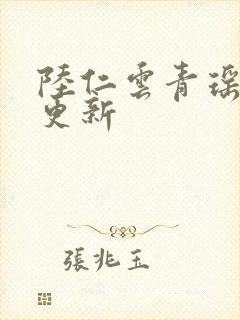 陸仁雲青瑶
更新
張兆玉